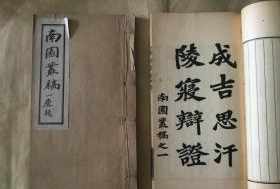 南園叢稿
成吉思汗
陵寢辯證
南園叢稿之一